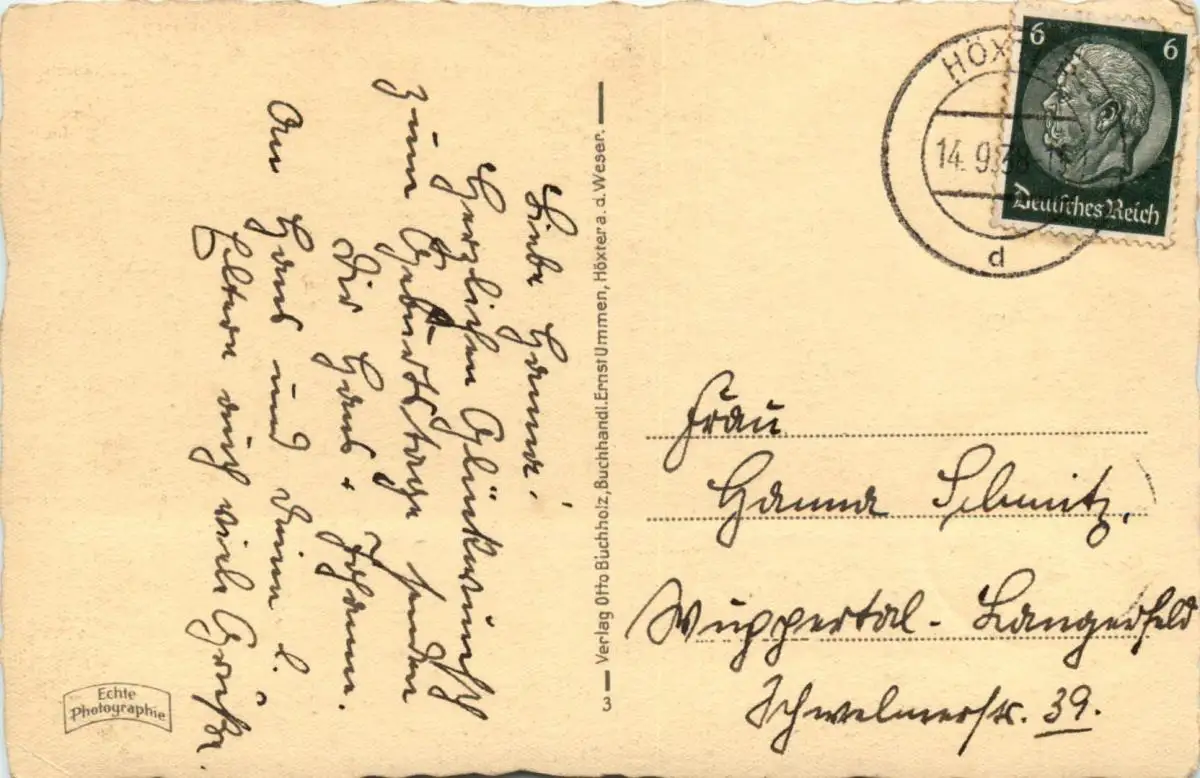 Liebe Hanna!
Herzlichen Glückwunsch
zum Geburtstage senden
Dir Hans + Johanna.
An Hans und Deine l.
Eltern auch viele Grüße.
Echte
Photographie
3 Verlag Otto Buchholz, Buchhandl. Ernst Ummen, Höxter a. d. Weser.
HÖX
14.9.38
d
6 6
Deutsches Reich
Frau
Hanna Schmitz.
Wuppertal-Langerfeld
Schwelmerstr. 39.